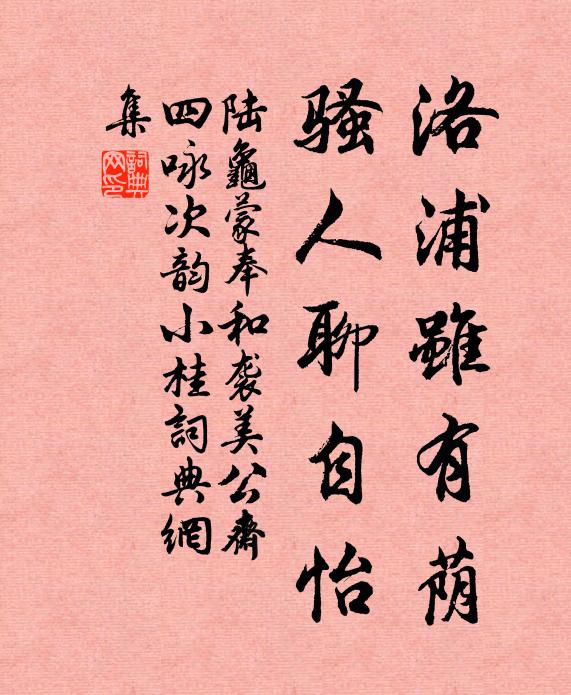 洛浦雖有荫
騷人聊自怡
陆龜蒙奉和袭美公齋
四咏次韵小桂詞典網
集
詞典
网印